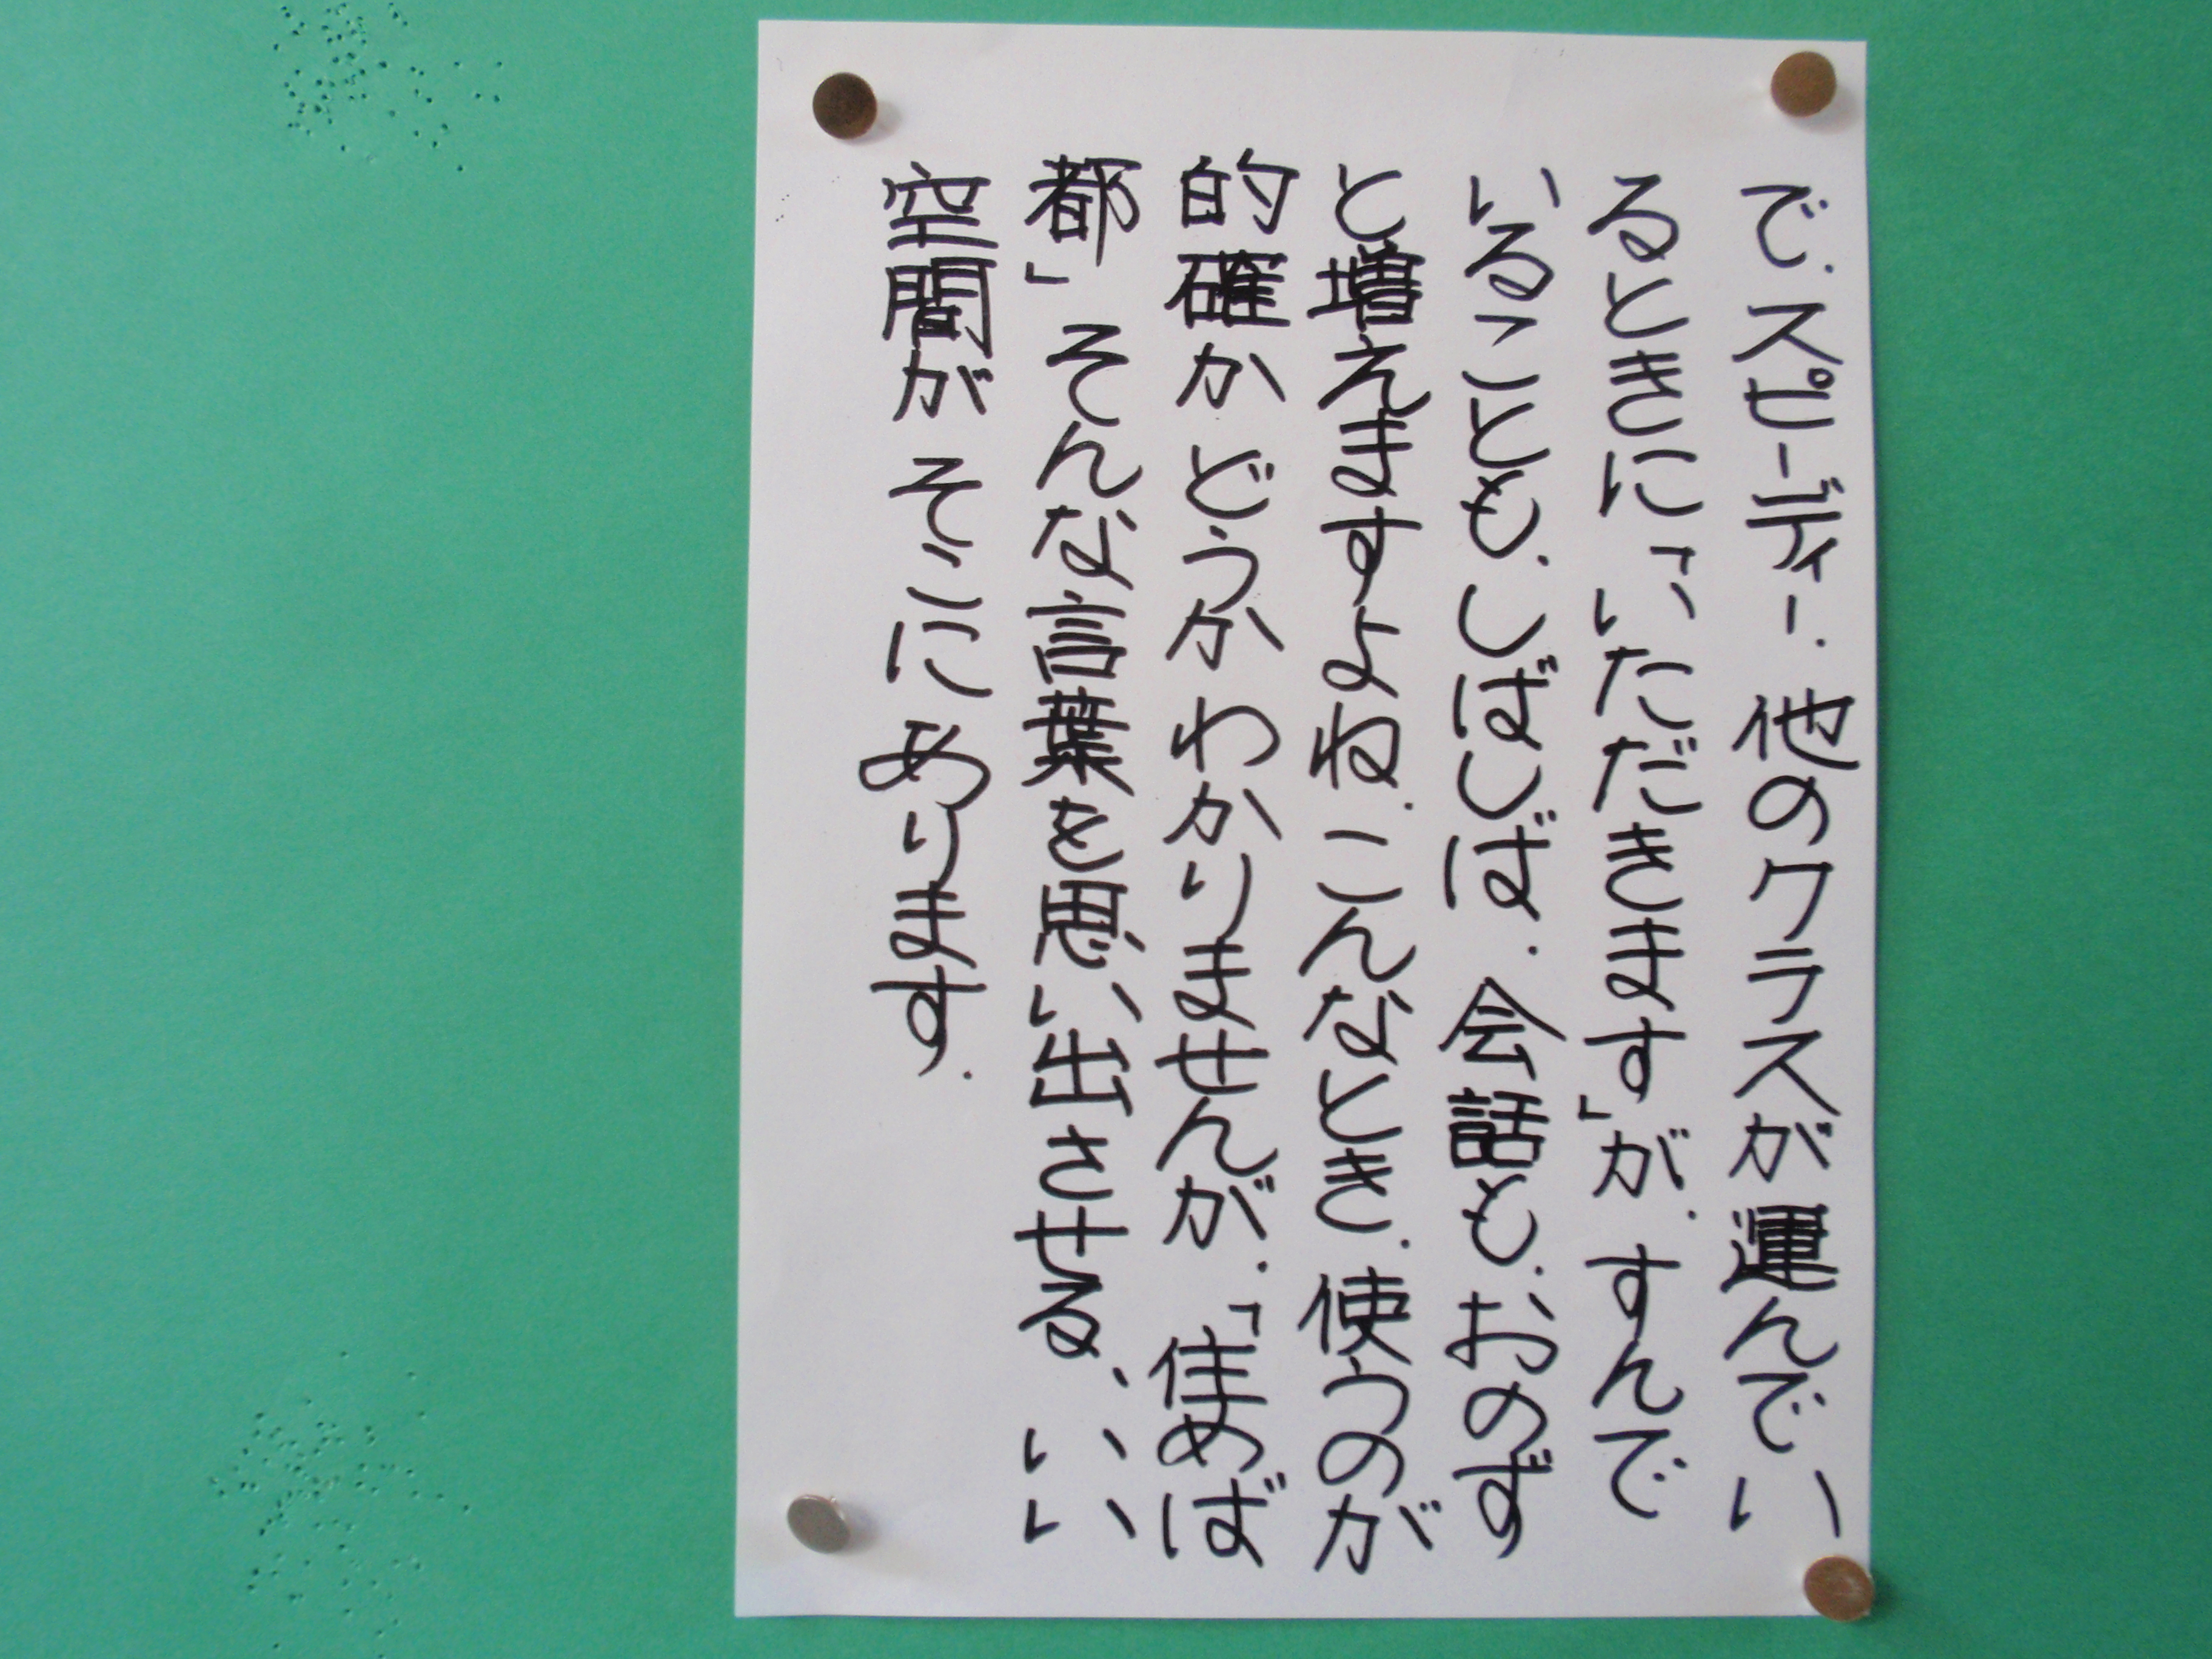 で、スピーディー、他のクラスが運んでい
るときに「いただきます」が、すんで
いることも、しばしば、会話も、おのず
と増えますよね、こんなとき、使うのが
的確かどうかわかりませんが、「住めば
都」そんな言葉を思い出させる、いい
空間がそこにあります。